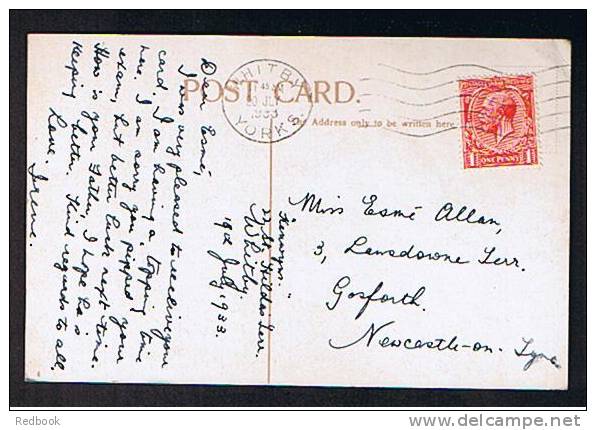 POST CARD.
The Address only to be written here
WHITBY
45 AM
20 JLY
1933
YORKS.
ONE PENNY
"Fenwyn."
22, St. Hilda's Terr.
Whitby
19th July 1933.
Dear Esmé,
I was very pleased to receive your
card. I am having a topping time
here. I am sorry you pipped your
exam, but better luck next time.
How is your Father, I hope he is
keeping better. Kind regards to all.
Love. Irene.
Miss Esmé Allan,
3, Lansdowne Terr.
Gosforth.
Newcastle-on-Tyne
Redbook
www.delcampe.net